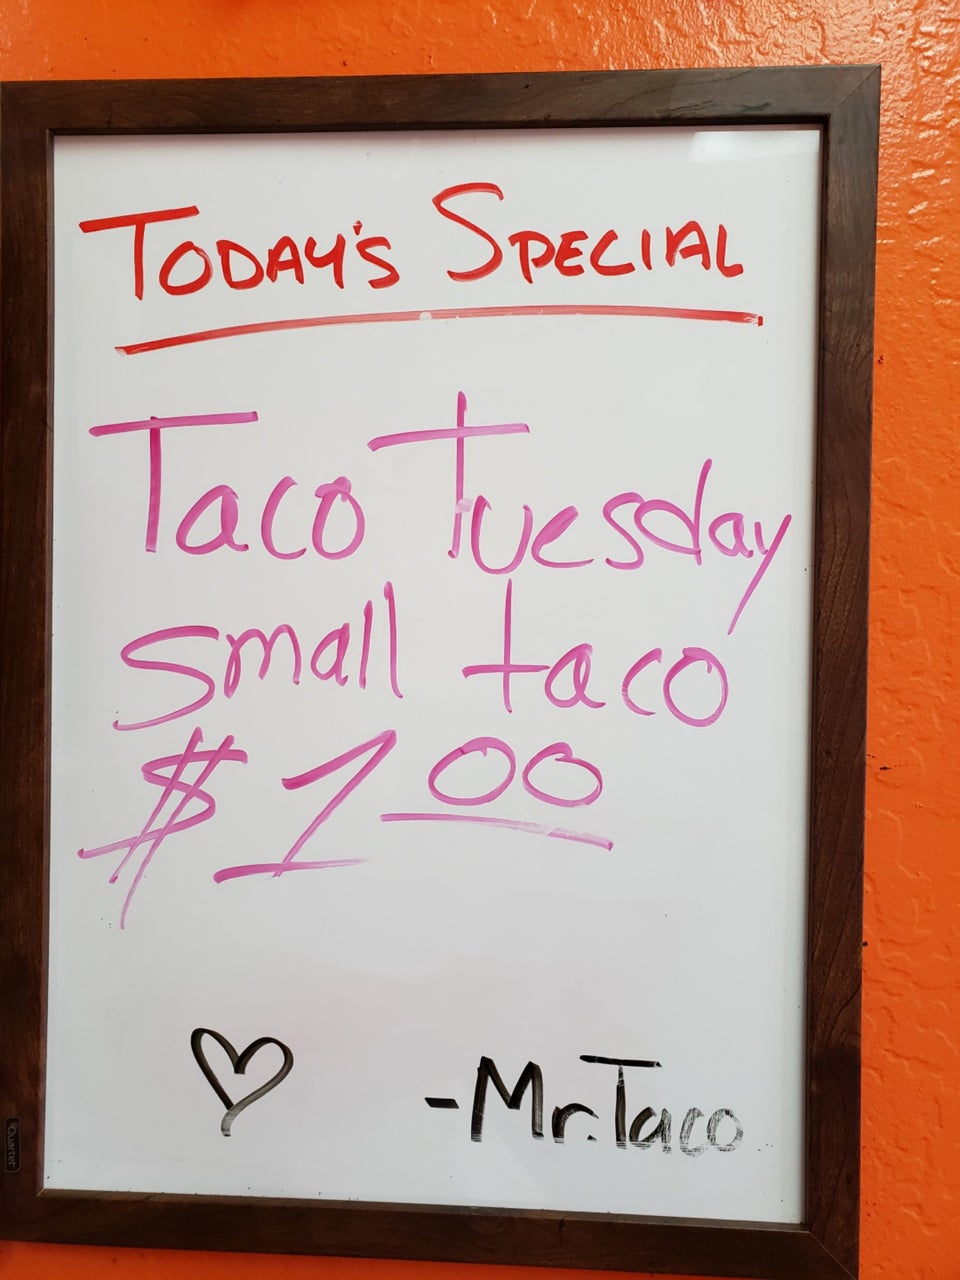 TODAY'S SPECIAL
Taco Tuesday
small taco
$1.00
-Mr. Taco
Quartet